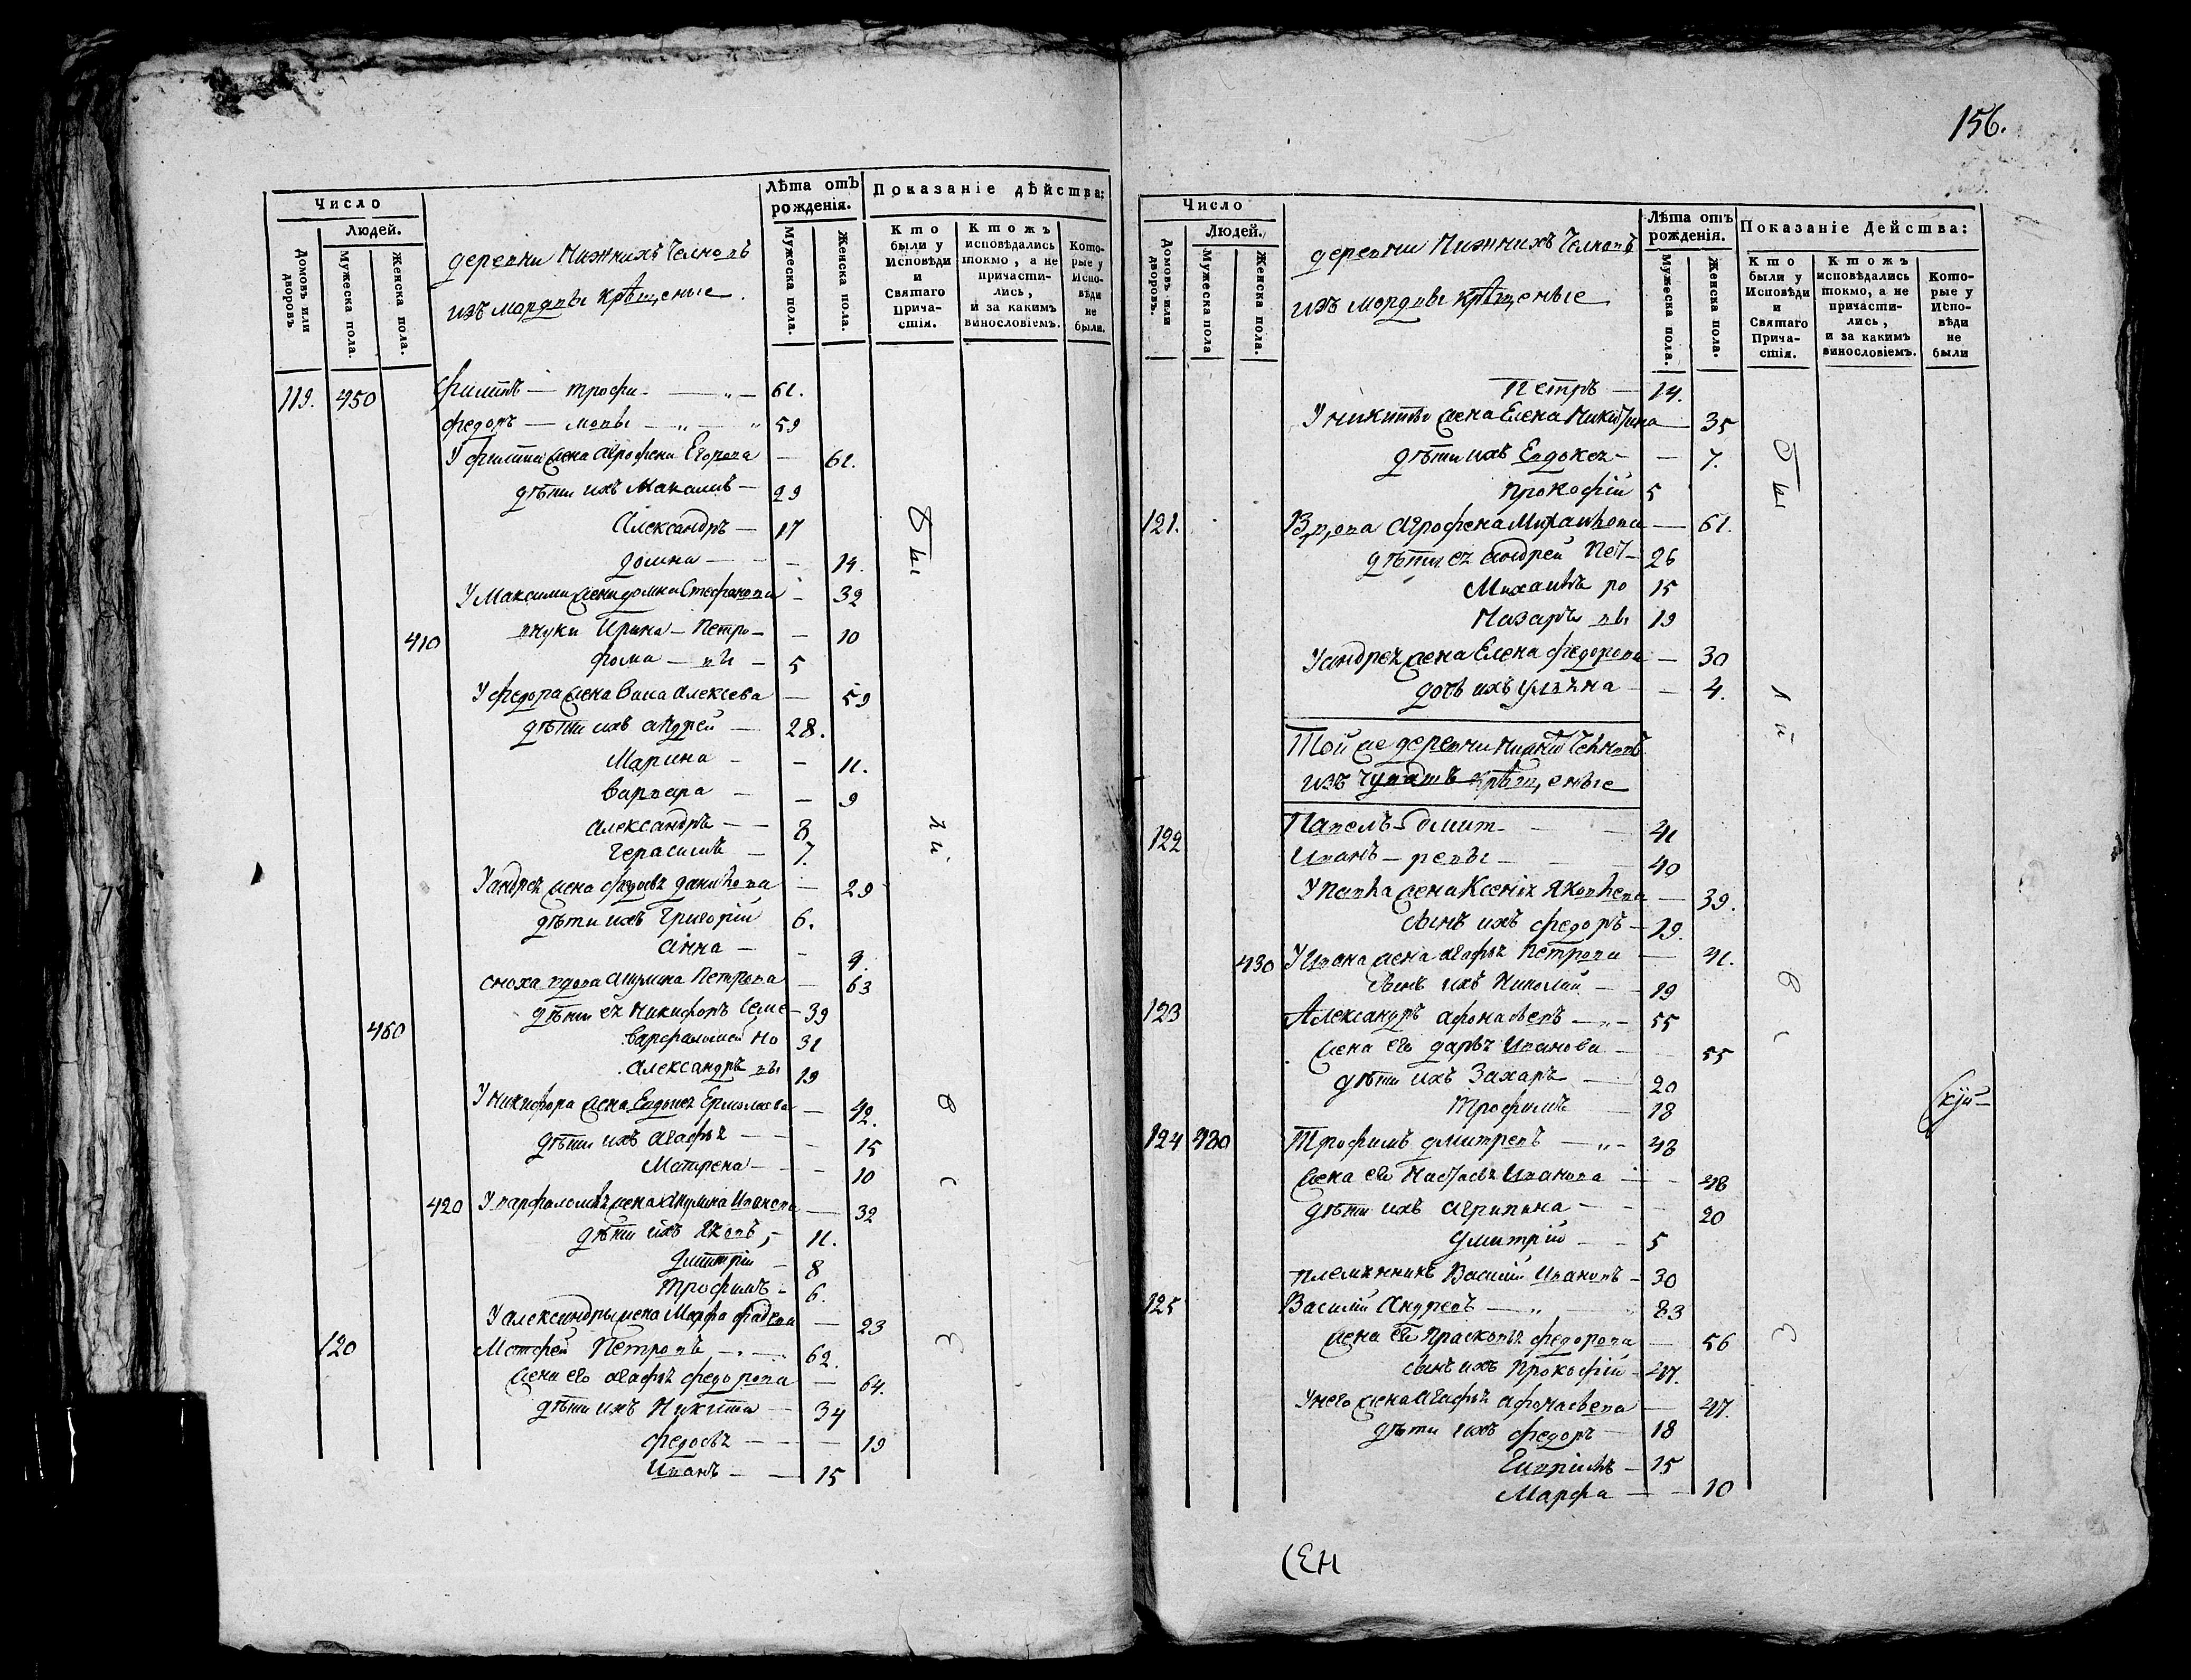 Число
Людей.
Домовъ или дворовъ
Мужеска пола.
Женска пола.
деревни Нижнихъ Челновъ
изъ мордвы крѣщеные.
Лѣта отъ рожденія.
Мужеска пола.
Женска пола.
Показаніе дѣйства:
Кто были у Исповѣди и Святаго Прича-стія.
Ктожъ исповѣдались токмо, а не причасти-лись, и за какимъ винословіемъ.
Кото-рые у Испо-вѣди не были.
119. 450 Филипъ — трофи- — „ — 61.
Федоръ — мовы — „ — „ 59
У филипа жена Агрофена Егорова — 61.
дѣти ихъ Максимъ — 29
Александръ — 17
домна — — 14.
У Максима жена домна Стефанова — 32
410 внуки Ирина — Петро — — 10
фома — вы — 5
У федора жена Васа алексева — 59
дѣти ихъ андрей — 28.
Марина — — 11.
варвара — — 9
александръ — — 8
герасимъ — 7.
У андрея жена федосья данилова — 29
дѣти ихъ григорій 6.
анна — — 4.
сноха вдова акулина Петрова — 63
дѣти ея Никифоръ Семе — 39
460 варфаломей но 31
александръ вы 19
У никифора жена Евдокея Ермолаева — 42.
дѣти ихъ агафья — — 15
Матрена — — 10
420 У варфаломея жена акулина Иванова — 32
дѣти ихъ Яковъ, — 11.
дмитрій — 8
трофимъ — 6.
У александры жена Марфа фадева — 23
120 Матфей Петровъ — „ — 62.
жена его агафья федорова — 64.
дѣти ихъ Никита — 34
федосья — — — 19
Иванъ — — 15
бы
ли
в
с
Е
156.
Число
Людей.
Домовъ или дворовъ.
Мужеска пола
Женска пола.
деревни Нижнихъ Челновъ
изъ мордвы крѣщеные
Лѣта отъ рожденія.
Мужеска пола.
Женска пола.
Показаніе Дейсшва:
Кто были у Исповѣди и Святаго Прича-стія.
Ктожъ исповѣдались токмо, а не причасти-лись, и за какимъ винословіемъ.
Кото-рые у Испо-вѣди не были
Петръ — 14.
У никиты жена Елена Никитина — 35
дѣти ихъ Евдокея — — 7.
прокофій 5
121. Вдова агрофена Михаилова — 61.
дѣти ея андрей Пет — 26
Михаилъ ро 15
Назаръ вы 19
У андрея жена Елена федорова — 30
дочь ихъ улѣяна — — 4.
Той же деревни нижнихъ Челновъ
изъ чувашъ крѣщеные
122 Павелъ дмит — — 41
Иванъ — ревы — — 40
У павла жена Ксенія Яковлева — 39.
сынъ ихъ федоръ — 19.
430 У Ивана жена агафья Петрова — 41.
сынъ ихъ Николай — — 19
123 Александръ афонасьевъ — „ — 55
жена его дарья Иванова — — 55
дѣти ихъ Захаръ — 20
Трофимъ — 18
124 480 Трофимъ дмитревъ — „ — 48
жена его Настасья Иванова — — 48
дѣти ихъ агрипина — — 20
дмитрій — — 5
племянникъ Василій Ивановъ — 30
125 Василій андревъ — „ — 83
жена его прасковья федорова — 56
сынъ ихъ прокофій — 47.
У него жена агафья афонасьева — 47.
дѣти ихъ федоръ — 18
Гавріилъ — 15
Марфа — — 10
бы
ли
в
с
Е